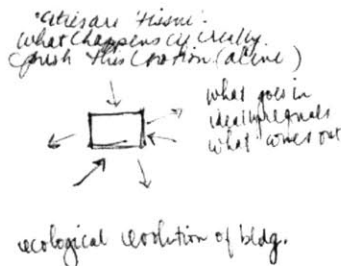 "Cities are 'tissue'.
What happens if really
push this notion (alive)
what goes in
ideally equals
what comes out
ecological evolution of bldg.